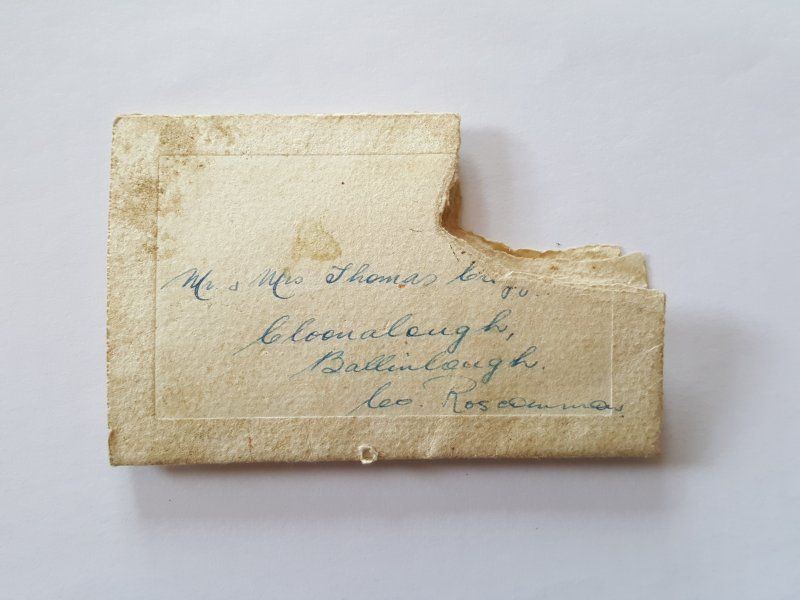 Mr & Mrs Thomas
Cloonalough,
Ballinlough.
Co. Roscommon.